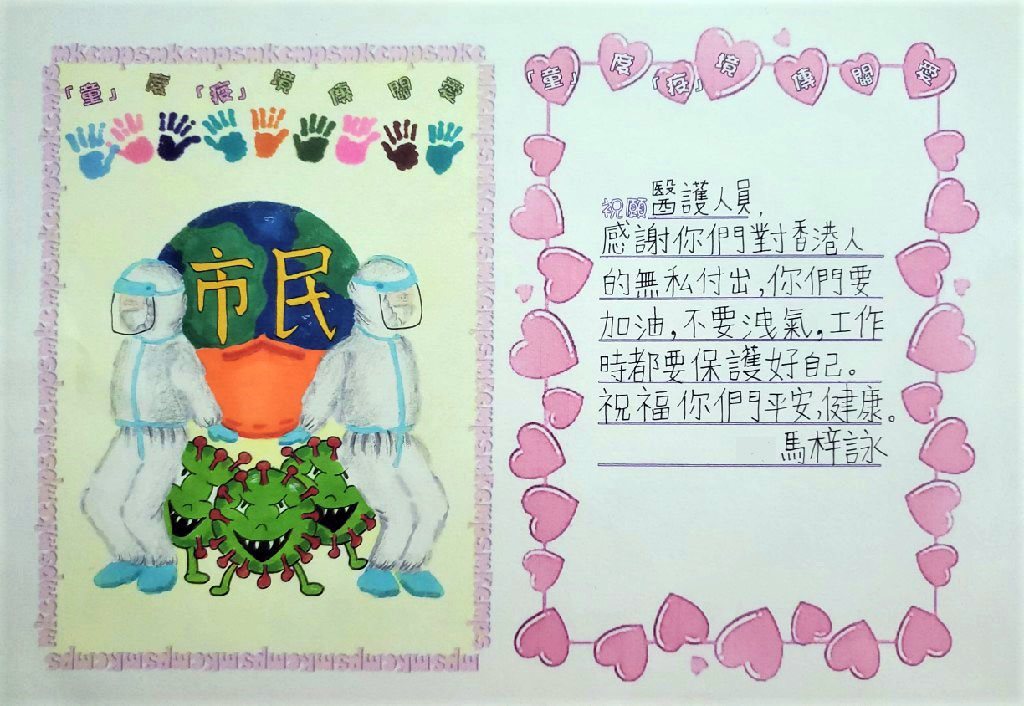 mkcmpsmkcmpsmkcmpsmkc
「童」度「疫」境傳關愛
市民
「童」度「疫」境傳關愛
祝願 醫護人員,
感謝你們對香港人
的無私付出,你們要
加油,不要洩氣。工作
時都要保護好自己。
祝福你們平安,健康。
馬梓詠